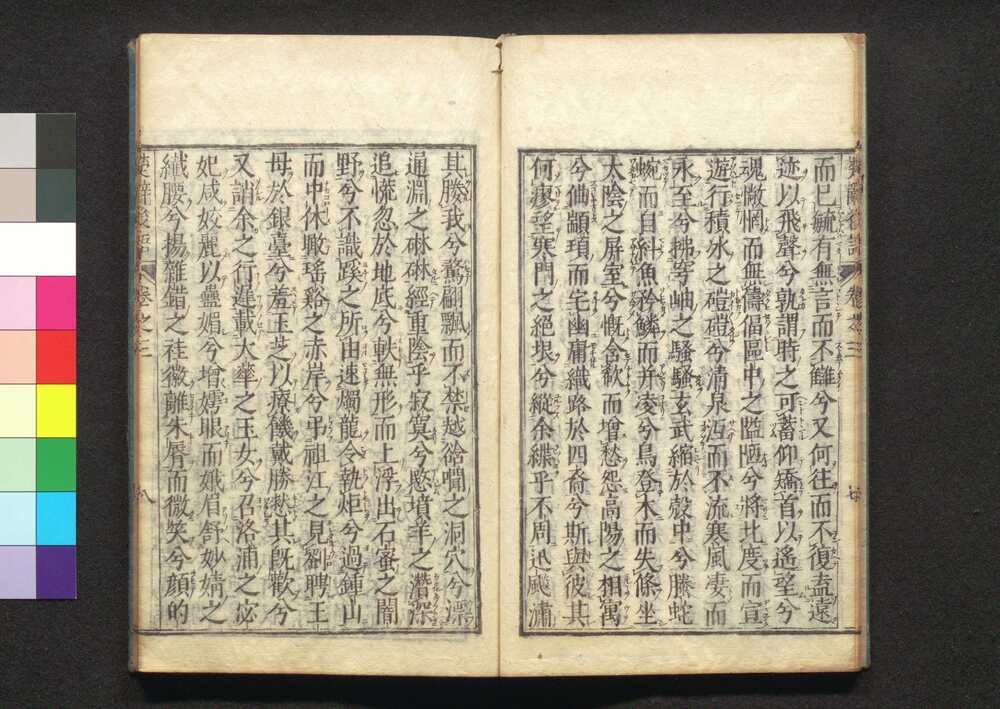 而已毓有無言而不讎兮又何往而不復盍遠
迹以飛聲兮孰謂時之可蓄仰矯首以遙望兮
魂懒惘而無儔偪區中之隘陋兮將北度而宣
遊行積氷之磑磑兮清泉冱而不流寒風凄而
永至兮拂穹岫之騷騷玄武縮於殼中兮騰蛇
蜿而自糾魚矜鱗而并凌兮鳥登木而失條坐
太陰之屏室兮慨含欷而增愁怨高陽之相寓
兮伷顓頊而宅幽庸織路於四裔兮斯與彼其
何瘳望寒門之絕垠兮縱余緤乎不周迅飈潚
其媵我兮鶩翩飄而不禁越谽㘎之洞穴兮漂
通淵之碄碄經重陰乎寂寞兮愍墳羊之潛深
追慌忽於地底兮軼無形而上浮出石蜜之闇
野兮不識蹊之所由速燭龍令執炬兮過鍾山
而中休瞰瑤谿之赤岸兮弔祖江之見劉聘王
母於銀臺兮羞玉芝以療饑戴勝憖其既歡兮
又誚余之行遲載太華之玉女兮召洛浦之宓
妃咸姣麗以蠱媚兮增嫮眼而娥眉舒妙婧之
纖腰兮揚雜錯之袿徽離朱脣而微笑兮顏的
楚辭後語
卷之三
八
楚辭後語
卷之三
七